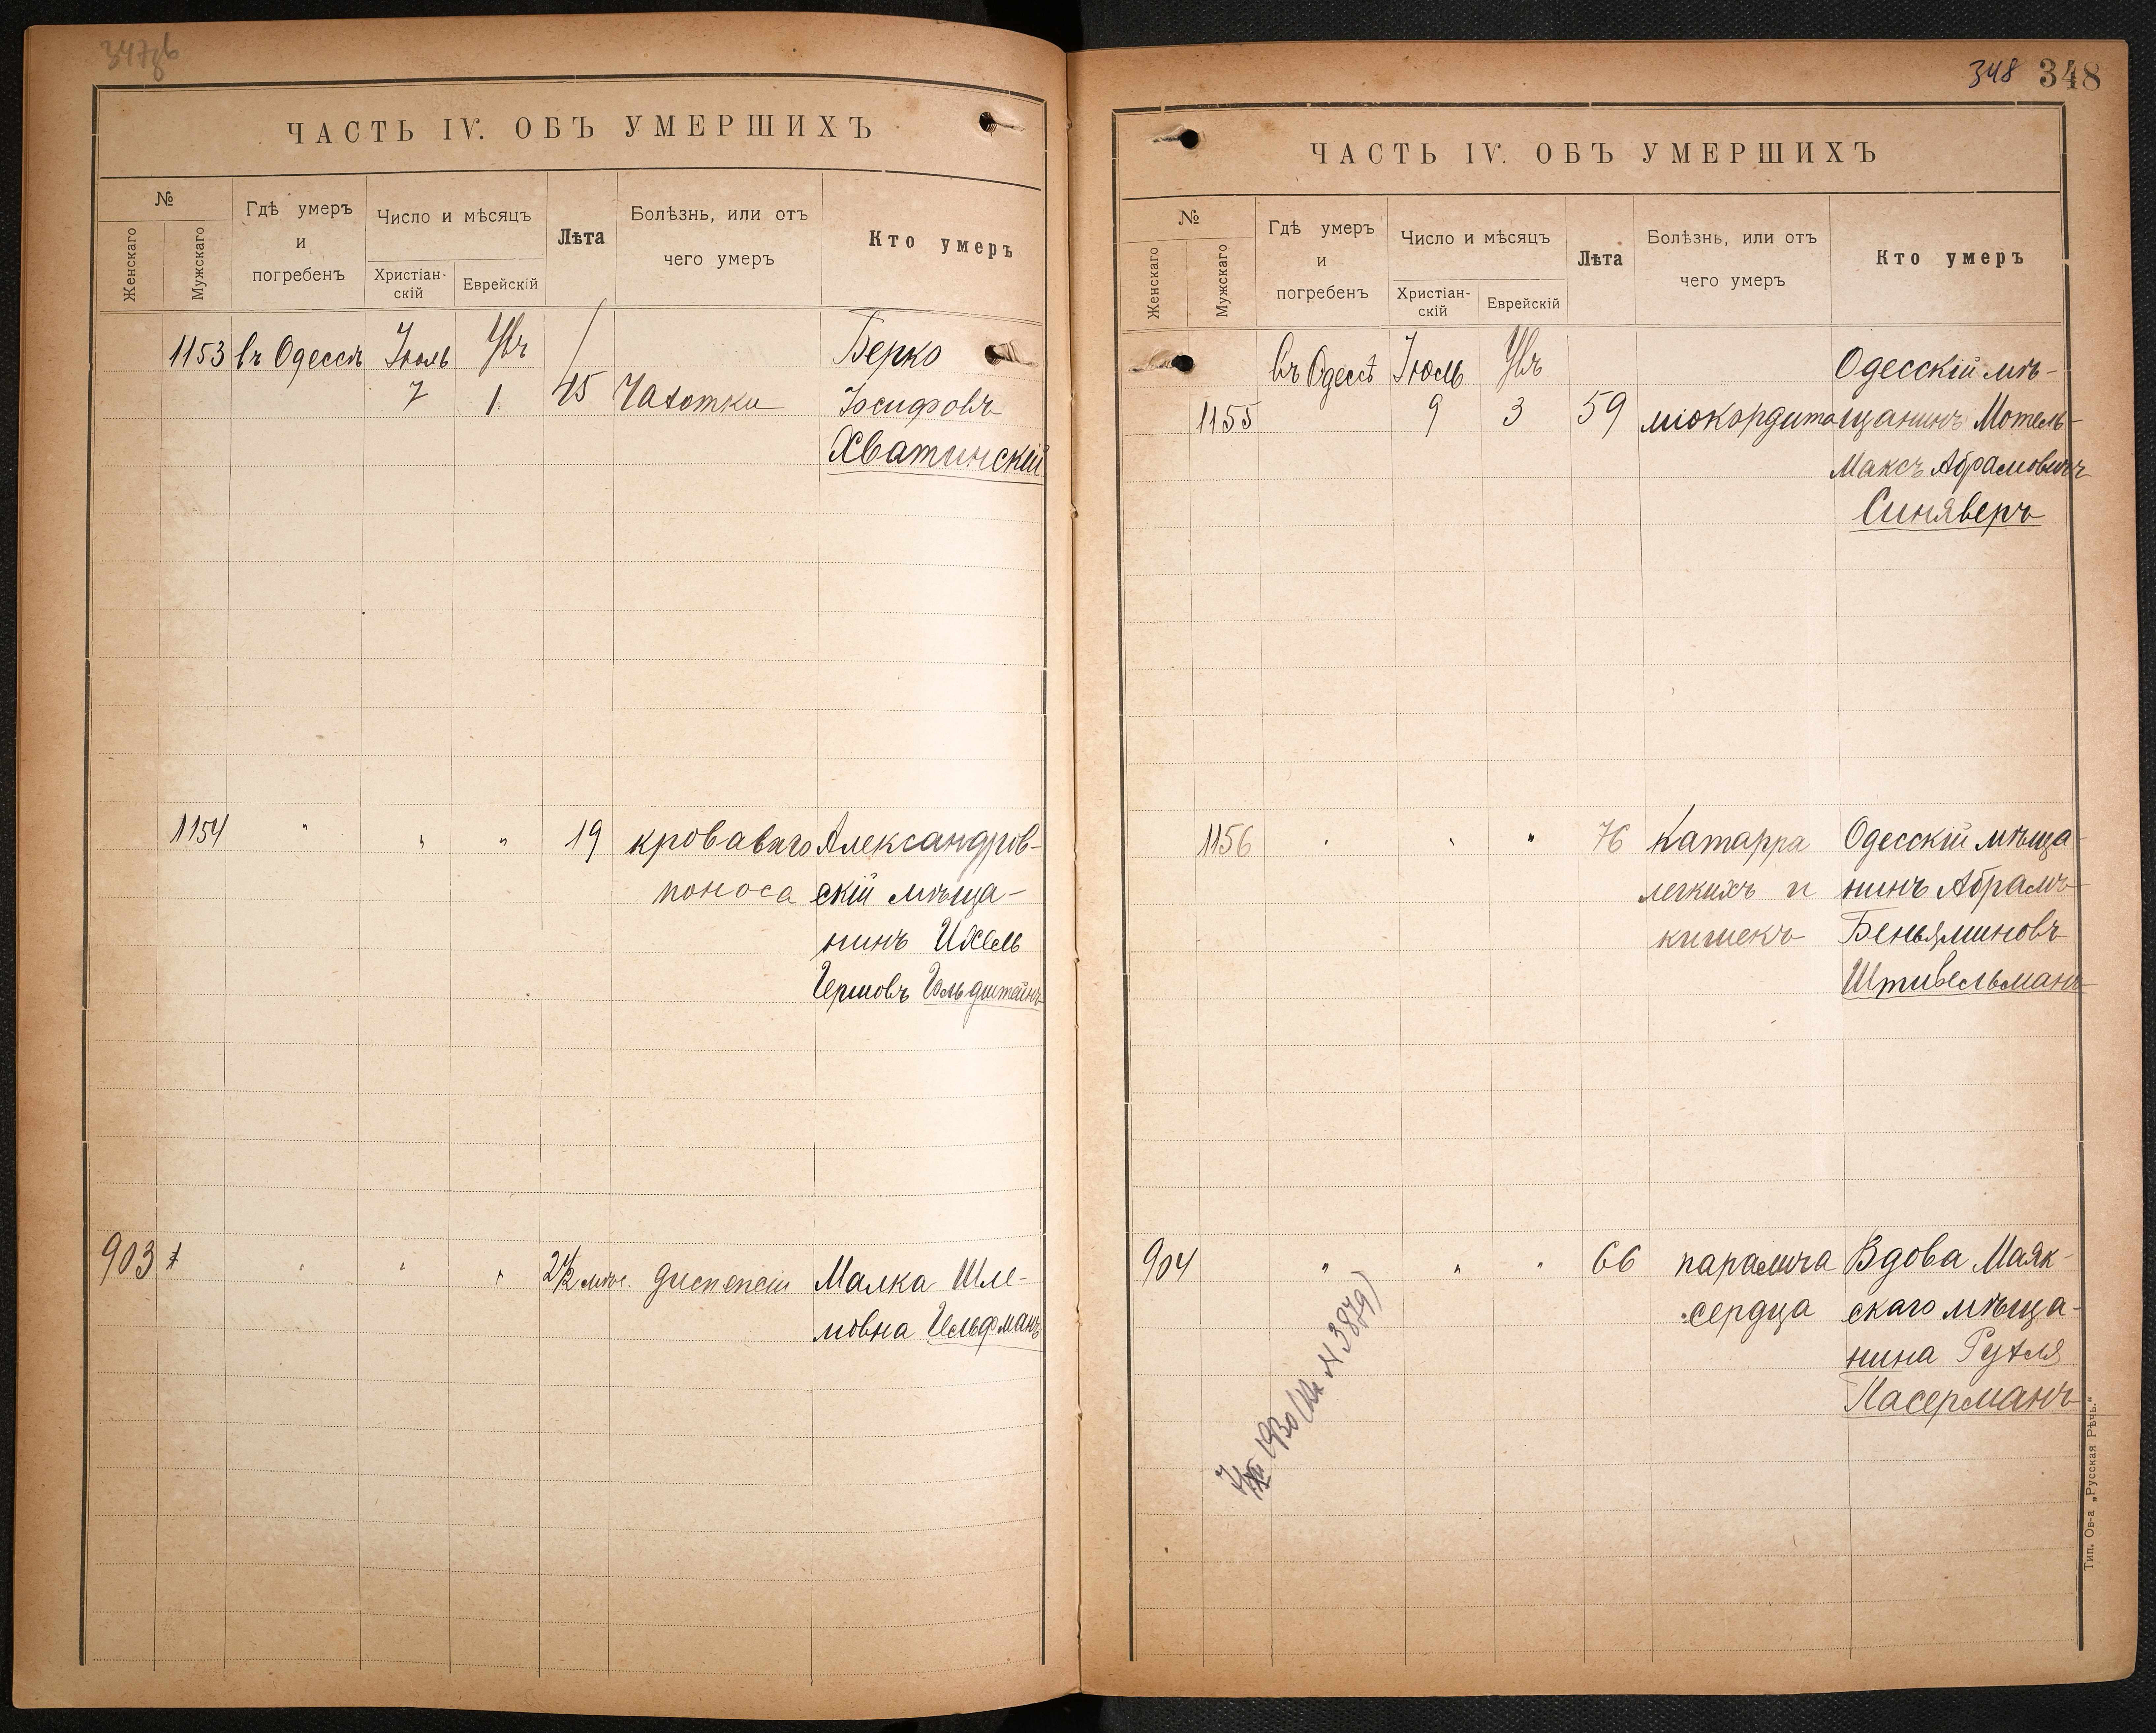 347об
ЧАСТЬ IV. ОБЪ УМЕРШИХЪ
№
Женскаго
Мужскаго
Гдѣ умеръ
и
погребенъ
Число и мѣсяцъ
Христіан-
скій
Еврейскій
Лѣта
Болѣзнь, или отъ
чего умеръ
Кто умеръ
1153 въ Одессѣ Іюль Увъ Берко
7 1 45 Чахотки Іосифовъ
Хватинскій
1154 " " " 19 кроваваго Александров-
поноса скій мѣща-
нинъ Ихель
Гершовъ Гольдштейнъ
903 " " " 2½ мѣс. диспепсіи Малка Шле-
мовна Гельфманъ
348 348
ЧАСТЬ IV. ОБЪ УМЕРШИХЪ
№
Женскаго
Мужскаго
Гдѣ умеръ
и
погребенъ
Число и мѣсяцъ
Христіан-
скій
Еврейскій
Лѣта
Болѣзнь, или отъ
чего умеръ
Кто умеръ
въ Одессѣ Іюль Увъ Одесскій мѣ-
1155 9 3 59 міокардита щанинъ Мотель-
Максъ Абрамовичъ
Синяверъ
1156 " " " 76 Катарра Одесскій мѣща-
легкихъ и нинъ Абрамъ
кишекъ Беньяминовъ
Штивельманъ
904 " " " 66 паралича Вдова Маяк-
сердца скаго мѣща-
нина Рухля
Ласерманъ
1930 № 3879)
Тип. Ов-а „Русская Рѣчь."